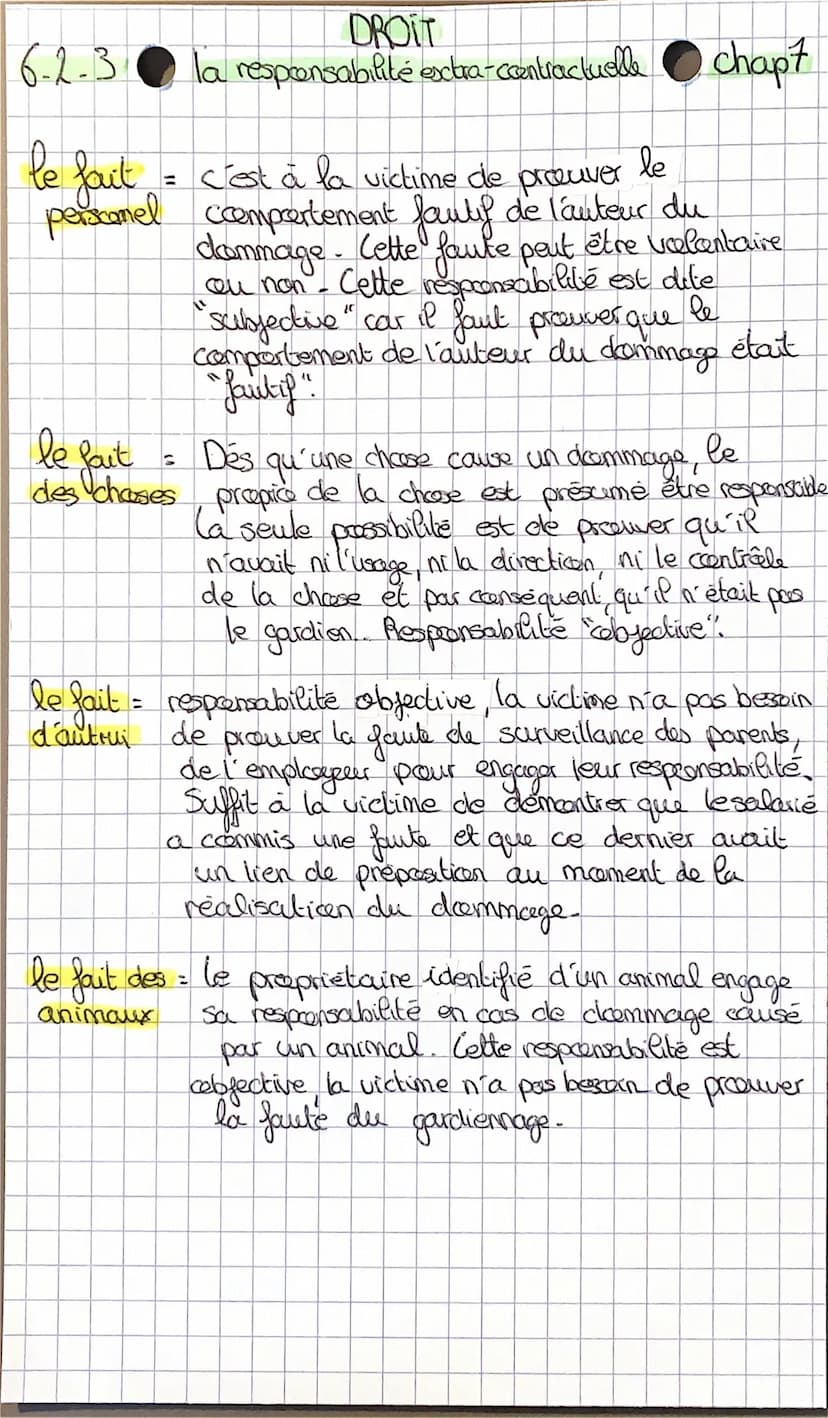 DROIT
6-2-3 la responsabilité extra-contractuelle chap7
le fait = c'est à la victime de prouver le
personel comportement fautif de l'auteur du
dommage. Cette faute peut être volontaire
ou non - Cette responsabilité est dite
"subjective" car il faut prouver que le
comportement de l'auteur du dommage était
"fautif".
le fait = Dès qu'une chose cause un dommage, le
des choses proprio de la chose est présumé être responsable
la seule possibilité est de prouver qu'il
n'avait ni l'usage, ni la direction, ni le contrôle
de la chose et par conséquent, qu'il n'était pas
le gardien.. Responsabilité "objective".
le fait = responsabilité objective, la victime n'a pas besoin
d'autrui de prouver la faute de surveillance des parents,
de l'employeur pour engager leur responsabilité.
Suffit à la victime de démontrer que le salarié
a commis une faute et que ce dernier avait
un lien de préposition au moment de la
réalisation du dommage.
le fait des = le propriétaire identifié d'un animal engage
animaux sa responsabilité en cas de dommage causé
par un animal. Cette responsabilité est
objective, la victime n'a pas besoin de prouver
la faute du gardiennage.